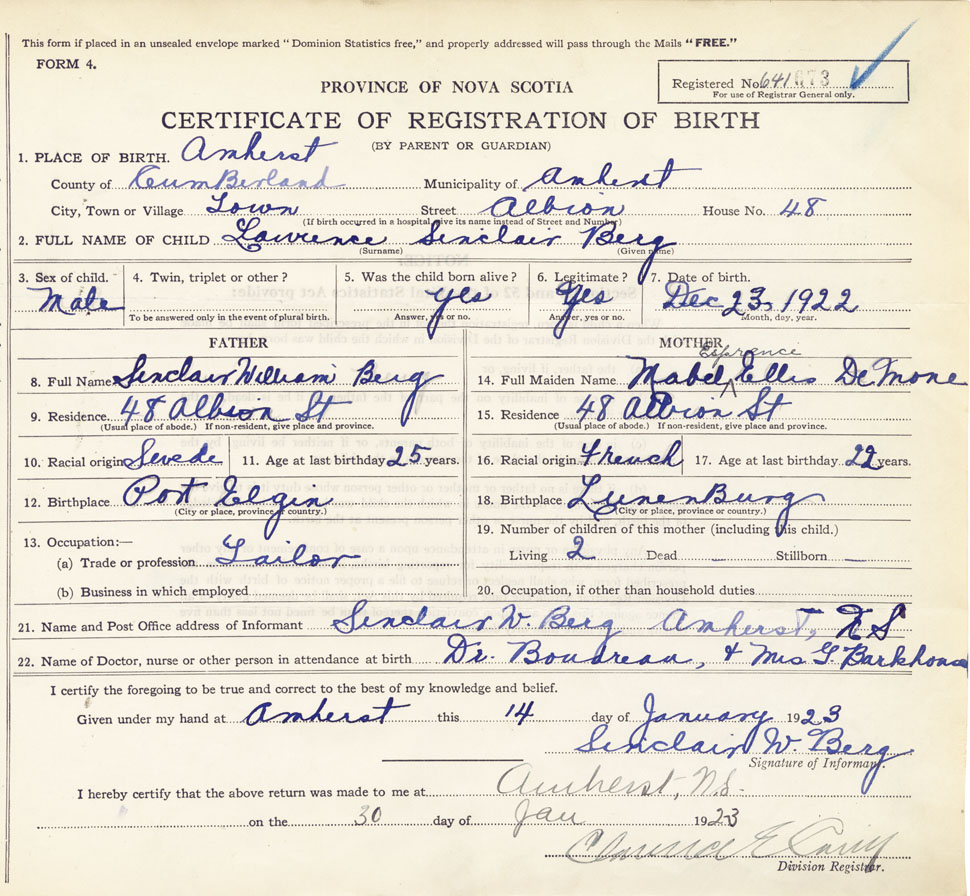 This form if placed in an unsealed envelope marked "Dominion Statistics free," and properly addressed will pass through the Mails "FREE."
FORM 4.
PROVINCE OF NOVA SCOTIA
Registered No. 641673
For use of Registrar General only.
CERTIFICATE OF REGISTRATION OF BIRTH
(BY PARENT OR GUARDIAN)
1. PLACE OF BIRTH. Amherst
County of CumBerland Municipality of Amherst
City, Town or Village Town Street Albion House No. 48
(If birth occurred in a hospital, give its name instead of Street and Number)
2. FULL NAME OF CHILD Lawrence Sinclair Berg
(Surname) (Given name)
3. Sex of child. 4. Twin, triplet or other? 5. Was the child born alive? 6. Legitimate? 7. Date of birth.
Male Yes Yes Dec 23, 1922
To be answered only in the event of plural birth. Answer, yes or no. Answer, yes or no. Month, day, year.
FATHER MOTHER
8. Full Name Sinclair William Berg
9. Residence. 48 Albion St
(Usual place of abode.) If non-resident, give place and province.
10. Racial origin Swede 11. Age at last birthday 25 years.
12. Birthplace Port Elgin
(City or place, province or country.)
13. Occupation:—
(a) Trade or profession Tailor
(b) Business in which employed
14. Full Maiden Name Mabel Ellis DeMone
15. Residence 48 Albion St
(Usual place of abode.) If non-resident, give place and province.
16. Racial origin French 17. Age at last birthday 22 years.
18. Birthplace LunenBurg
(City or place, province or country.)
19. Number of children of this mother (including this child.)
Living 2 Dead — Stillborn —
20. Occupation, if other than household duties
21. Name and Post Office address of Informant Sinclair W. Berg Amherst, N S
22. Name of Doctor, nurse or other person in attendance at birth Dr. Boudreau, & Mrs G. Barkhouse
I certify the foregoing to be true and correct to the best of my knowledge and belief.
Given under my hand at Amherst this 14 day of January 1923
Sinclair W. Berg
Signature of Informant.
I hereby certify that the above return was made to me at Amherst, N.S.
on the 30 day of Jan 1923
Clarence E
Division Registrar.